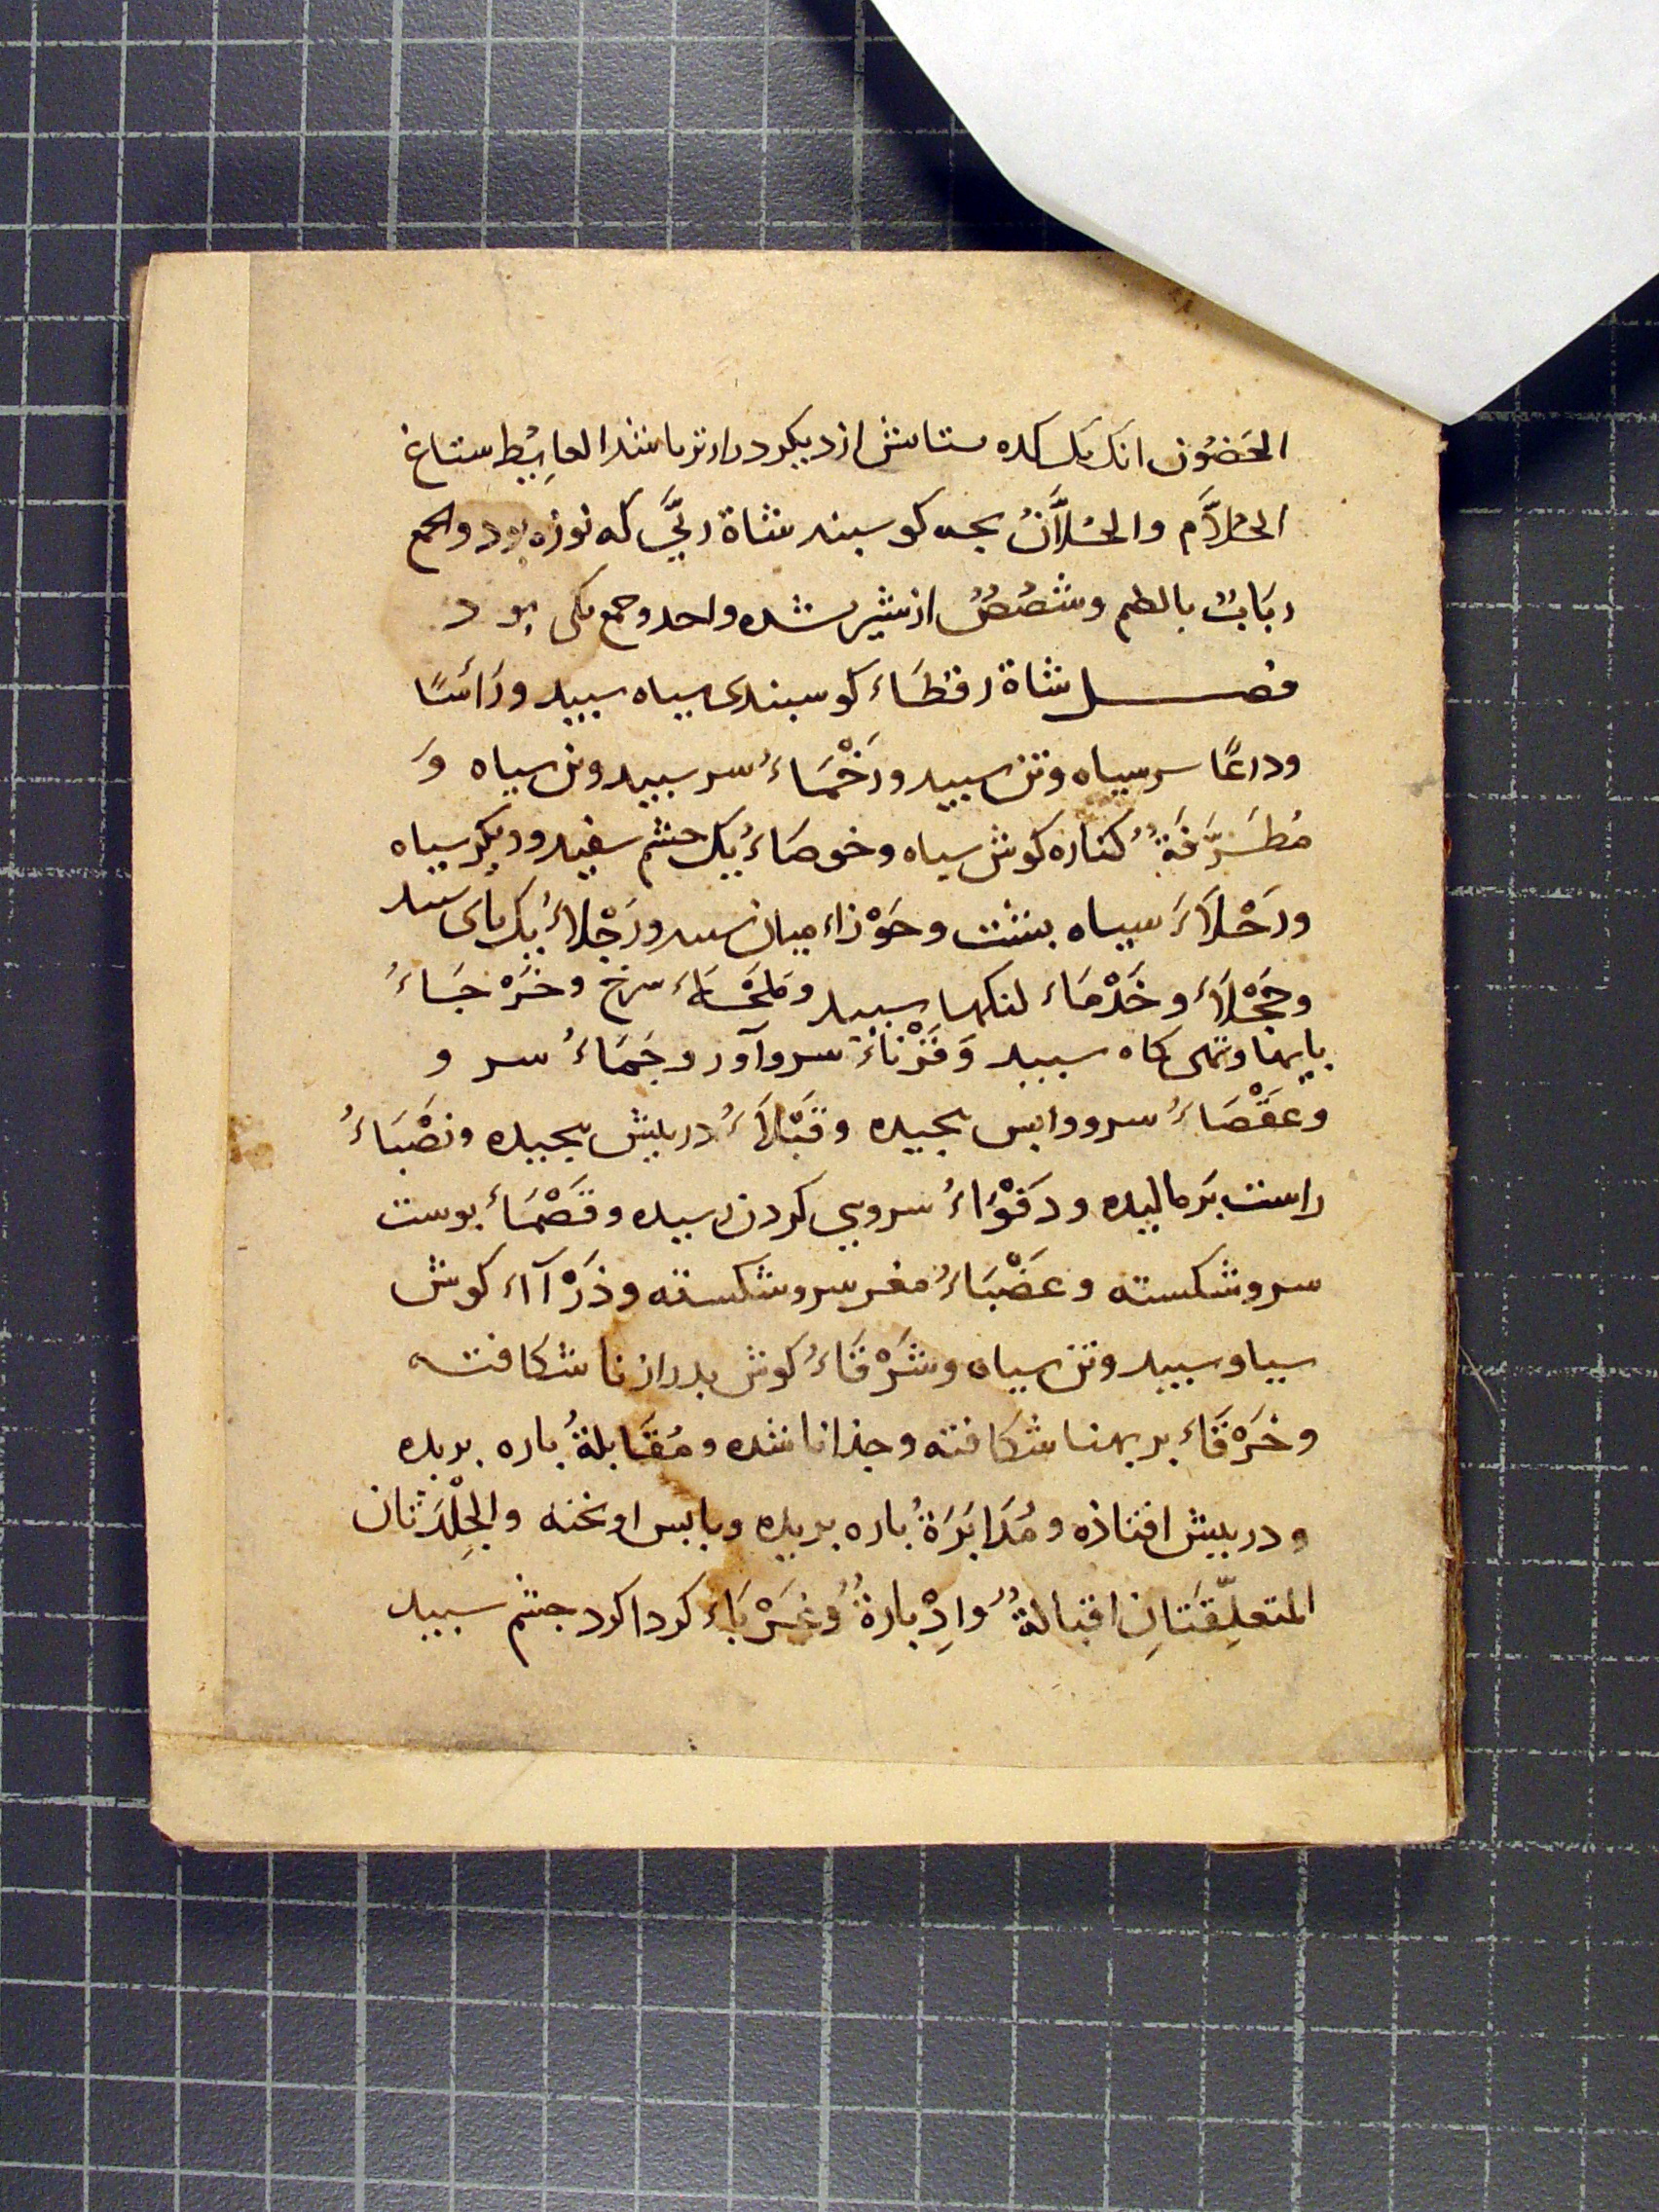 الحَضُون انک یک کده ستانش از دیکر درازتر باشد العایِط ستاغ
الحُلاَّم والحُلاَّنُ بجه کوسبند شاة رُبَّی که نوزه بود والجمع
رُبَابٌ بالضم وشَصُصٌ از شیر شده واحد وجمع یکی بود
فصل شاة رقطَاء کوسبندی سیاه سبید ورَأسَا
ودرعَا سر سیاه وتن سبید ورَخْمَاءُ سر سبید وتن سیاه وَ
مُطَرَّفَةٌ کناره کوش سیاه وخوصَاءُ یک حشم سفید ودیکر سیاه
ورَحْلاَءُ سیاه بشت وجَوْزاء میان سبید ورَجْلاءُ یک بای سبید
وحَجْلاَءُ وخَدْمَاء لنکها سبید ومَلْحَاءُ سرخ وخَرْجَاءُ
بایها وتهی کاه سبید وَقَرْنَاءُ سروآور وجَمَّاءُ سر و
وعَقْصَاءُ سرو وابس بجیده وقَبْلاَءُ دربیش بجیده ونَصْبَاءُ
راست بَرمالیده ودَفْوَاءُ سرو بی کردن رسیده وقَصْمَاءُ بوست
سرو شکسته وعَضْبَاءُ مغز سرو شکسته وذَرْآاء کوش
سیاو سبید وتن سیاه وشَرْقَاءُ کوش بدرازنا شکافته
وخَرْقَاءُ بربهنا شکافته وجذانا شده ومُقَابلةُ باره بریده
ودربیش افتاذه ومُدَابَرَةُ باره بریده وبابس اوخته والجِلْدَتان
المتعلِّقَتَانِ اقبالةٌ وَاِدْبارةٌ وغَرْبَاءُ کرداکرد جشم سبید